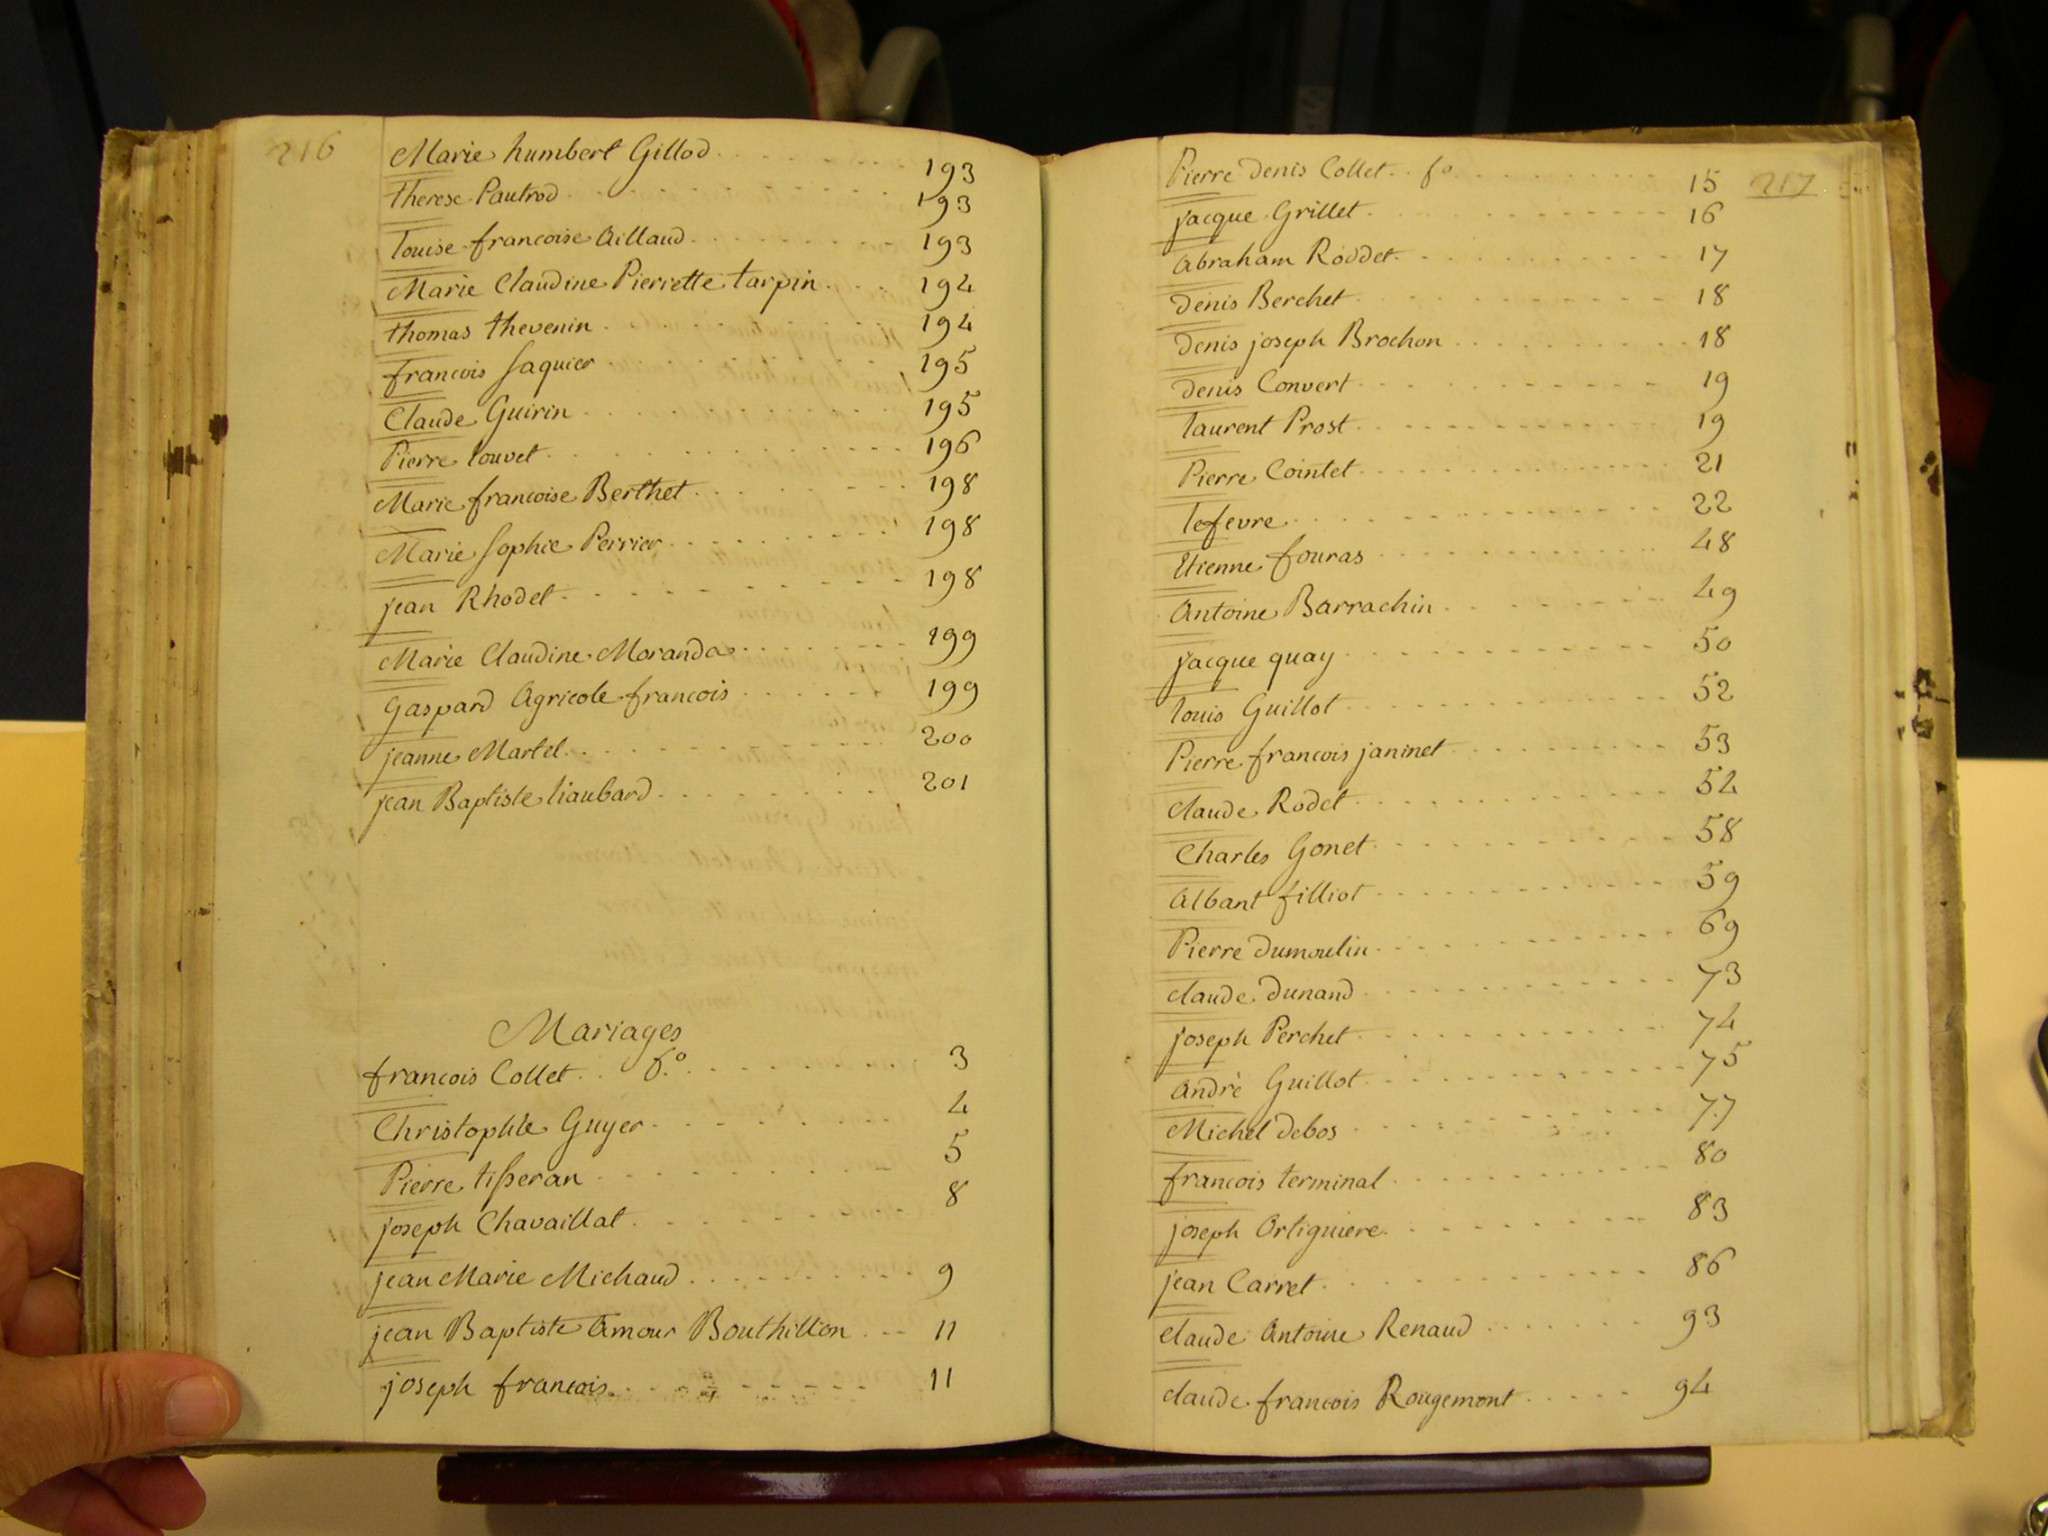 216
Marie humbert Gillod 193
therese Pautrod 193
louise francoise Aillaud 193
Marie Claudine Pierrette tarpin 194
thomas thevenin 194
francois saquier 195
Claude Guirin 195
Pierre louvet 196
Marie francoise Berthet 198
Marie sophie Perrier 198
jean Rhodet 198
Marie Claudine Moranda 199
Gaspard Agricole francois 199
jeanne Martel 200
jean Baptiste liaubard 201
Mariages
francois Collet f.o 3
Christophle Guyer 4
Pierre tisseran 5
joseph Chavaillat 8
jean Marie Michaud 9
jean Baptiste Amour Bouthillon 11
joseph francois 11
217
Pierre Denis Collet fo 15
jacque Grillet 16
Abraham Roddet 17
Denis Berchet 18
Denis joseph Brochon 18
Denis Convert 19
laurent Prost 19
Pierre Cointet 21
lefevre 22
Etienne fouras 48
Antoine Barrachin 49
jacque quay 50
louis Guillot 52
Pierre francois janinet 53
claude Rodet 54
Charles Gonet 58
Albant filliot 59
Pierre Dumoulin 69
claude Dunand 73
joseph Perchet 74
Andrè Guillot 75
Michel Debos 77
francois terminal 80
joseph Ortiguiere 83
jean Carret 86
claude Antoine Renaud 93
claude francois Rougemont 94